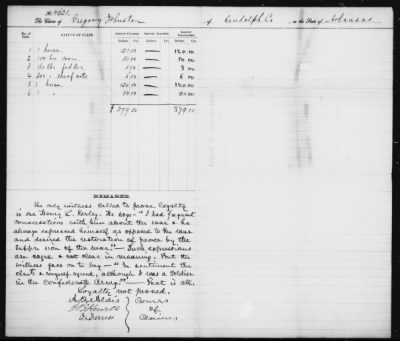 No.
The Claim of Gregory Johnston of Randolph Co. in the State of Arkansas
No. of Item. NATURE OF CLAIM. AMOUNT CLAIMED. AMOUNT ALLOWED. AMOUNT DISALLOWED.
Dollars. Cts. Dollars. Cts. Dollars. Cts.
1 1 horse 120.00 — 120.00
2
3 lbs fodder
4 6 00
5 1 horse
6 1 "
$379.00 — 379.00
REMARKS.
The only witness called to prove loyalty
is one Henry L. He says — "I had frequent
conversations with him about the war & he
always expressed himself as opposed to the war
and desired the restoration of peace by the
suppression of the war." — Such expressions
are vague & not clear in meaning. But the
witness goes on to say — "In sentiment the
clmt & myself agreed, although I was a soldier
in the Confederate Army." — That is all.
Loyalty not proved.
A. O. Aldis
J. B. Howell Comrs
O. Ferriss of
Claims